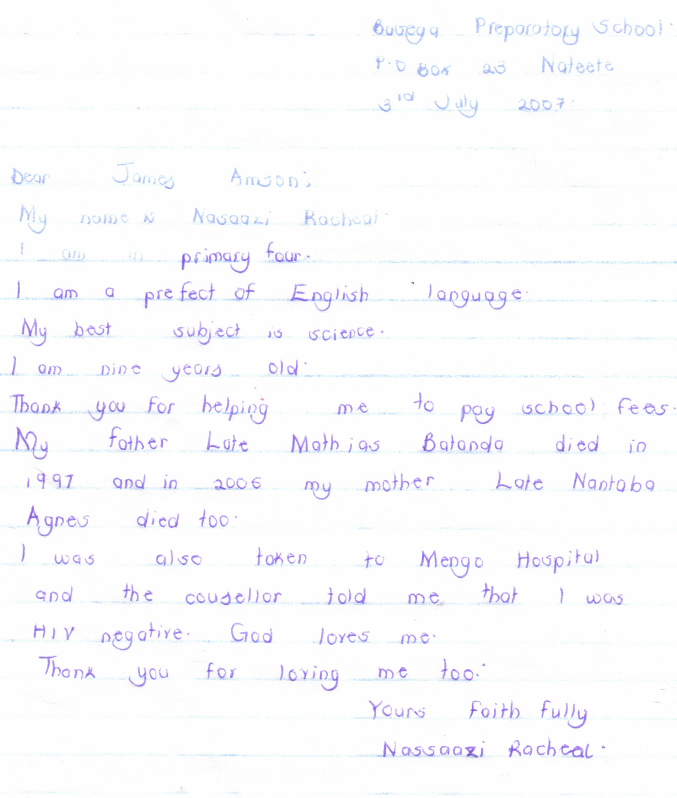 Busega Preparatory School.
P.O Box 23 Nateete
3rd July 2007.
Dear James Amson,
My name is Nasaazi Racheal.
I am in primary four.
I am a prefect of English language.
My best subject is science.
I am nine years old.
Thank you for helping me to pay school fees.
My father Late Mathias Batanda died in
1997 and in 2006 my mother Late Nantaba
Agnes died too.
I was also taken to Mengo Hospital
and the cousellor told me that I was
HIV negative. God loves me.
Thank you for loving me too.
Yours Faith fully
Nassaazi Racheal.